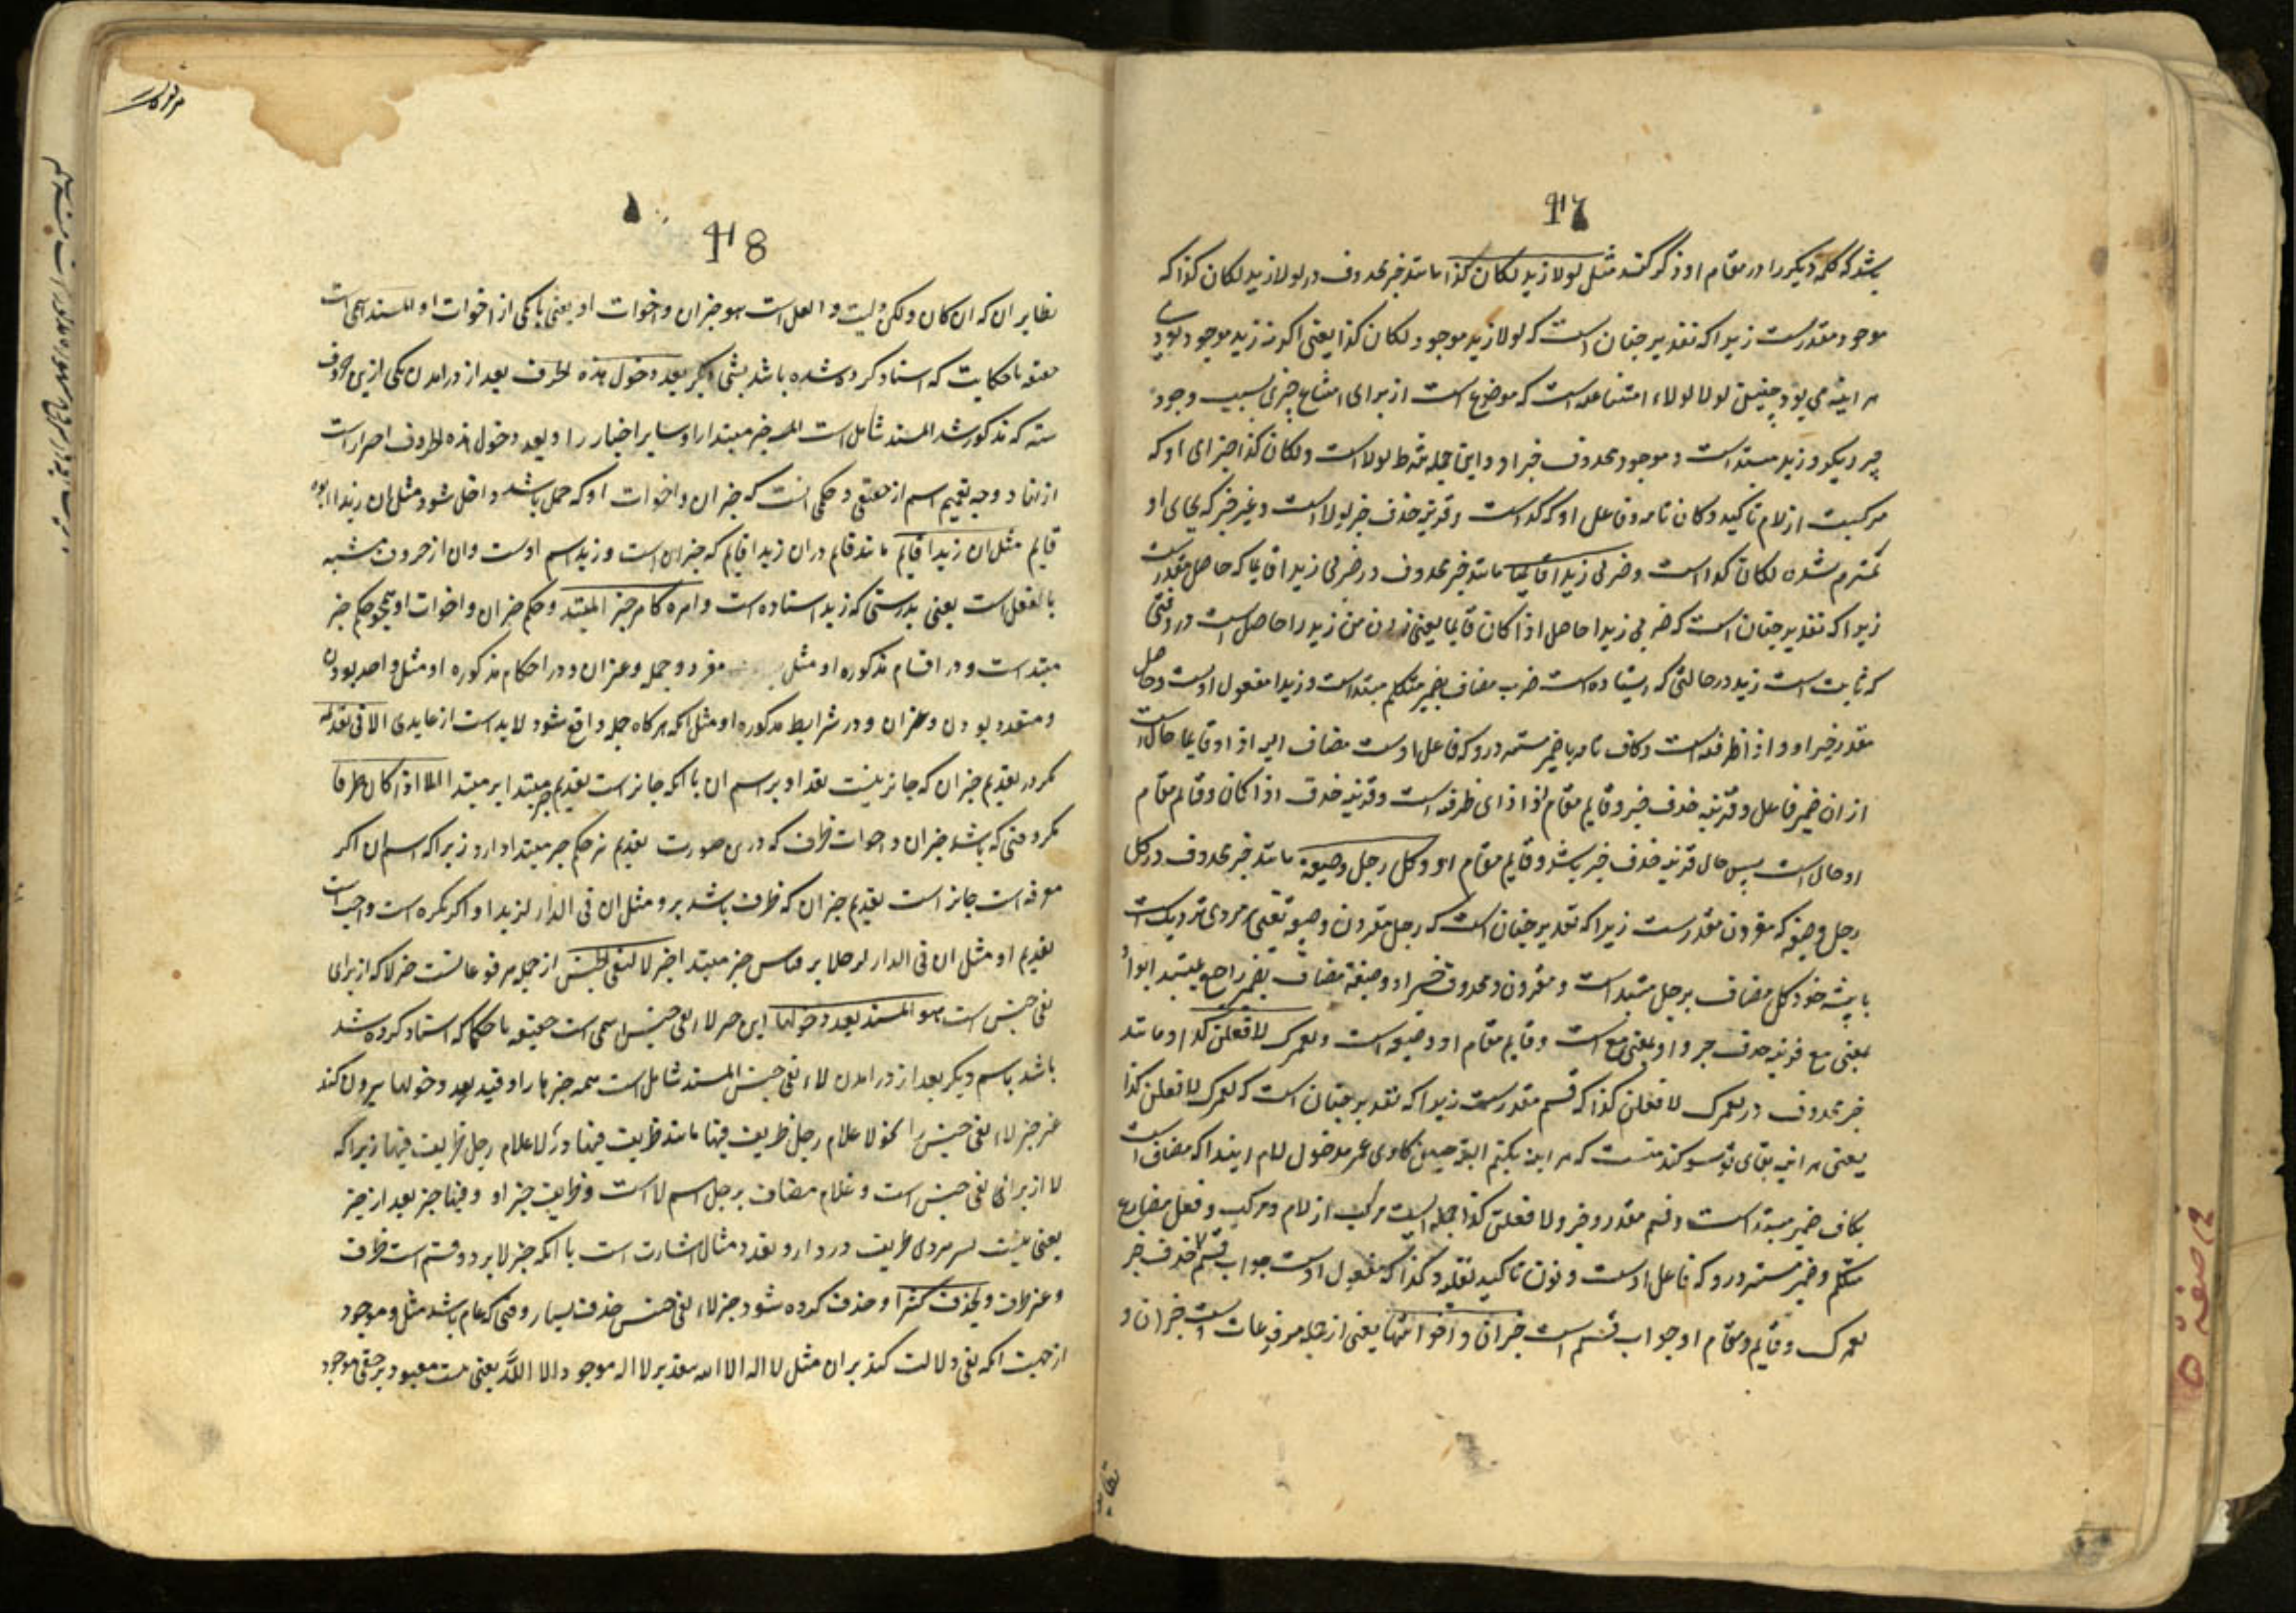 47
باشد که کلمه دیگر را در مقام او ذکر کنند مثل لولا زید لکان کذا مانند خبر محذوف در لولا زید لکان کذا که
موجود مقدرست زیرا که تقدیر چنان است که لولا زید موجود لکان کذا یعنی اکر نه زید موجود بودی
هر اینه می بود چنین لولا لولاء امتناعیه است که موضوع است از برای امتناع چیزی بسبب وجود
چیز دیکر و زید مبتداست و موجود محذوف خبر او و این جمله شرط لولا است و لکان کذا جزای او که
مرکبست از لام تاکید و کان تامه و فاعل او که کذاست و قرینه حذف خبر لولا است و غیر خبر که بجای او
ملتزم شده لکان کذا است و ضربی زیدا قایما مانند خبر محذوف در ضربی زیدا قایما که حاصل مقدرست
زیرا که تقدیر چنان است که ضربی زیدا حاصل اذا کان قایما یعنی زدن من زید را حاصل است در وقتی
که ثابت است زید در حالتی که ایستاده است ضرب مضاف بضمیر متکلم مبتداست و زیدا مفعول اوست و حاصل
مقدر خبر او و اذا ظرفیه است و کان تامه با ضمیر مستتر درو که فاعل اوست مضاف الیه اذا و قایما حال است
از ان ضمیر فاعل و قرینه حذف خبر و قایم مقام او اذا ای ظرفیه است و قرینه حذف اذا کان و قایم مقام
او حال است پس حال قرینه حذف خبر باشد و قایم مقام او و کل رجل وضیعته مانند خبر محذوف در کل
رجل وضیعته که مقرون مقدرست زیرا که تقدیر چنان است که رجل مقرون وضیعته یعنی هر مردی نزدیک است
با پیشه خود کل مضاف برجل مبتداست و مقرون محذوف خبر او وضیعته مضاف بضمیر راجع بمبتدا بواو
بمعنی مع قرینه حذف خبر واو بمعنی مع است و قایم مقام او وضیعته است و لعمرک لافعلن کذا و مانند
خبر محذوف در لعمرک لافعلن کذا که قسم مقدرست زیرا که تقدیر چنان است که لعمرک لافعلن کذا
یعنی هر اینه بقای تو سوکند منست که هر اینه بکنم البته چنین کاری عمر مدخول لام ابتدا که مضاف است
بکاف ضمیر مبتداست و قسم مقدر و خبر و لافعلن کذا جمله ایست مرکب از لام و مرکب و فعل مضارع
متکلم و ضمیر مستتر درو که فاعل اوست و نون تاکید ثقلیه و کذا که مفعول اوست جواب قسم حذف خبر
لعمرک و قایم و مقام او جواب قسم است خبر ان و اخواتها یعنی از جمله مرفوعات است خبر ان و
نظایر
48
نظایر ان که ان کان و لکن و لیت و لعل است هو خبر ان و اخوات او یعنی با یکی از اخوات او المسند اسمی است
حقیقه یا حکایت که اسناد کرده شده باشد بشی دیکر بعد دخول هذه الحروف بعد از درامدن یکی ازین حروف
سته که مذکور شد المسند شامل است المسند خبر مبتدا را و سایر اخبار را و بعد دخول هذه الحروف احتراز است
از انها و وجه تعمیم اسم از حقیقی و حکمی انست که خبر ان و اخوات او که جمله باشد داخل شود مثل ان زیدا ابوه
قایم مثل ان زیدا قایم مانند قایم در ان زیدا قایم که خبر ان است و زید اسم اوست و ان از حروف مشبه
بالفعل است یعنی بدرستی که زید استاده است و امره کامر خبر المبتدا و حکم خبر ان و اخوات او همچو حکم خبر
مبتداست و در اقسام مذکوره او مثل مفرد و جمله و غیر ان و در احکام مذکوره او مثل واحد بودن
و متعدد بودن و غیر ان و در شرایط مذکوره او مثل انکه هر کاه جمله واقع شود لابدست از عایدی الا فی تقدیمه
مکر در تقدیم خبر ان که جایز نیست تقدیم او بر اسم ان با انکه جایز است تقدیم خبر مبتدا بر مبتدا الا اذا کان ظرفا
مکر وقتی که باشد خبر ان و اخوات ظرف که درین صورت تقدیم نیز حکم خبر مبتدا دارد زیرا که اسم ان اکر
معرفه است جایز است تقدیم خبر ان که ظرف باشد برو مثل ان فی الدار لزیدا و اکر نکره است واجب است
تقدیم او مثل ان فی الدار لرجلا بر قیاس خبر مبتدا خبر لا لنفی الجنس از جمله مرفوعاتست خبر لا که از برای
نفی جنس است هو المسند بعد دخولها این خبر لاء نفی جنس اسمی است حقیقه یا حکما که اسناد کرده شده
باشد باسم دیکر بعد از درامدن لاء نفی جنس المسند شامل است همه خبرها را و قید بعد دخولها بیرون کند
غیر خبر لاء نفی جنس را نحو لا غلام رجل ظریف فیها مانند ظریف فیها در لا غلام رجل ظریف فیها زیرا که
لا از برای نفی جنس است و غلام مضاف برجل اسم لا است و ظریف خبر او و فیها خبر بعد از خبر
یعنی نیست پسر مردی ظریف در دار و تعدد مثال اشارت است با انکه خبر لا بر دو قسم است ظرف
و غیر ظرف و یحذف کثیرا و حذف کرده شود خبر لاء نفی جنس حذف بسیار وقتی که عام باشد مثل موجود
از جهت انکه نفی دلالت کند بر ان مثل لا اله الا الله بتقدیر لا اله موجود الا الله یعنی نیست معبود برحقی موجود